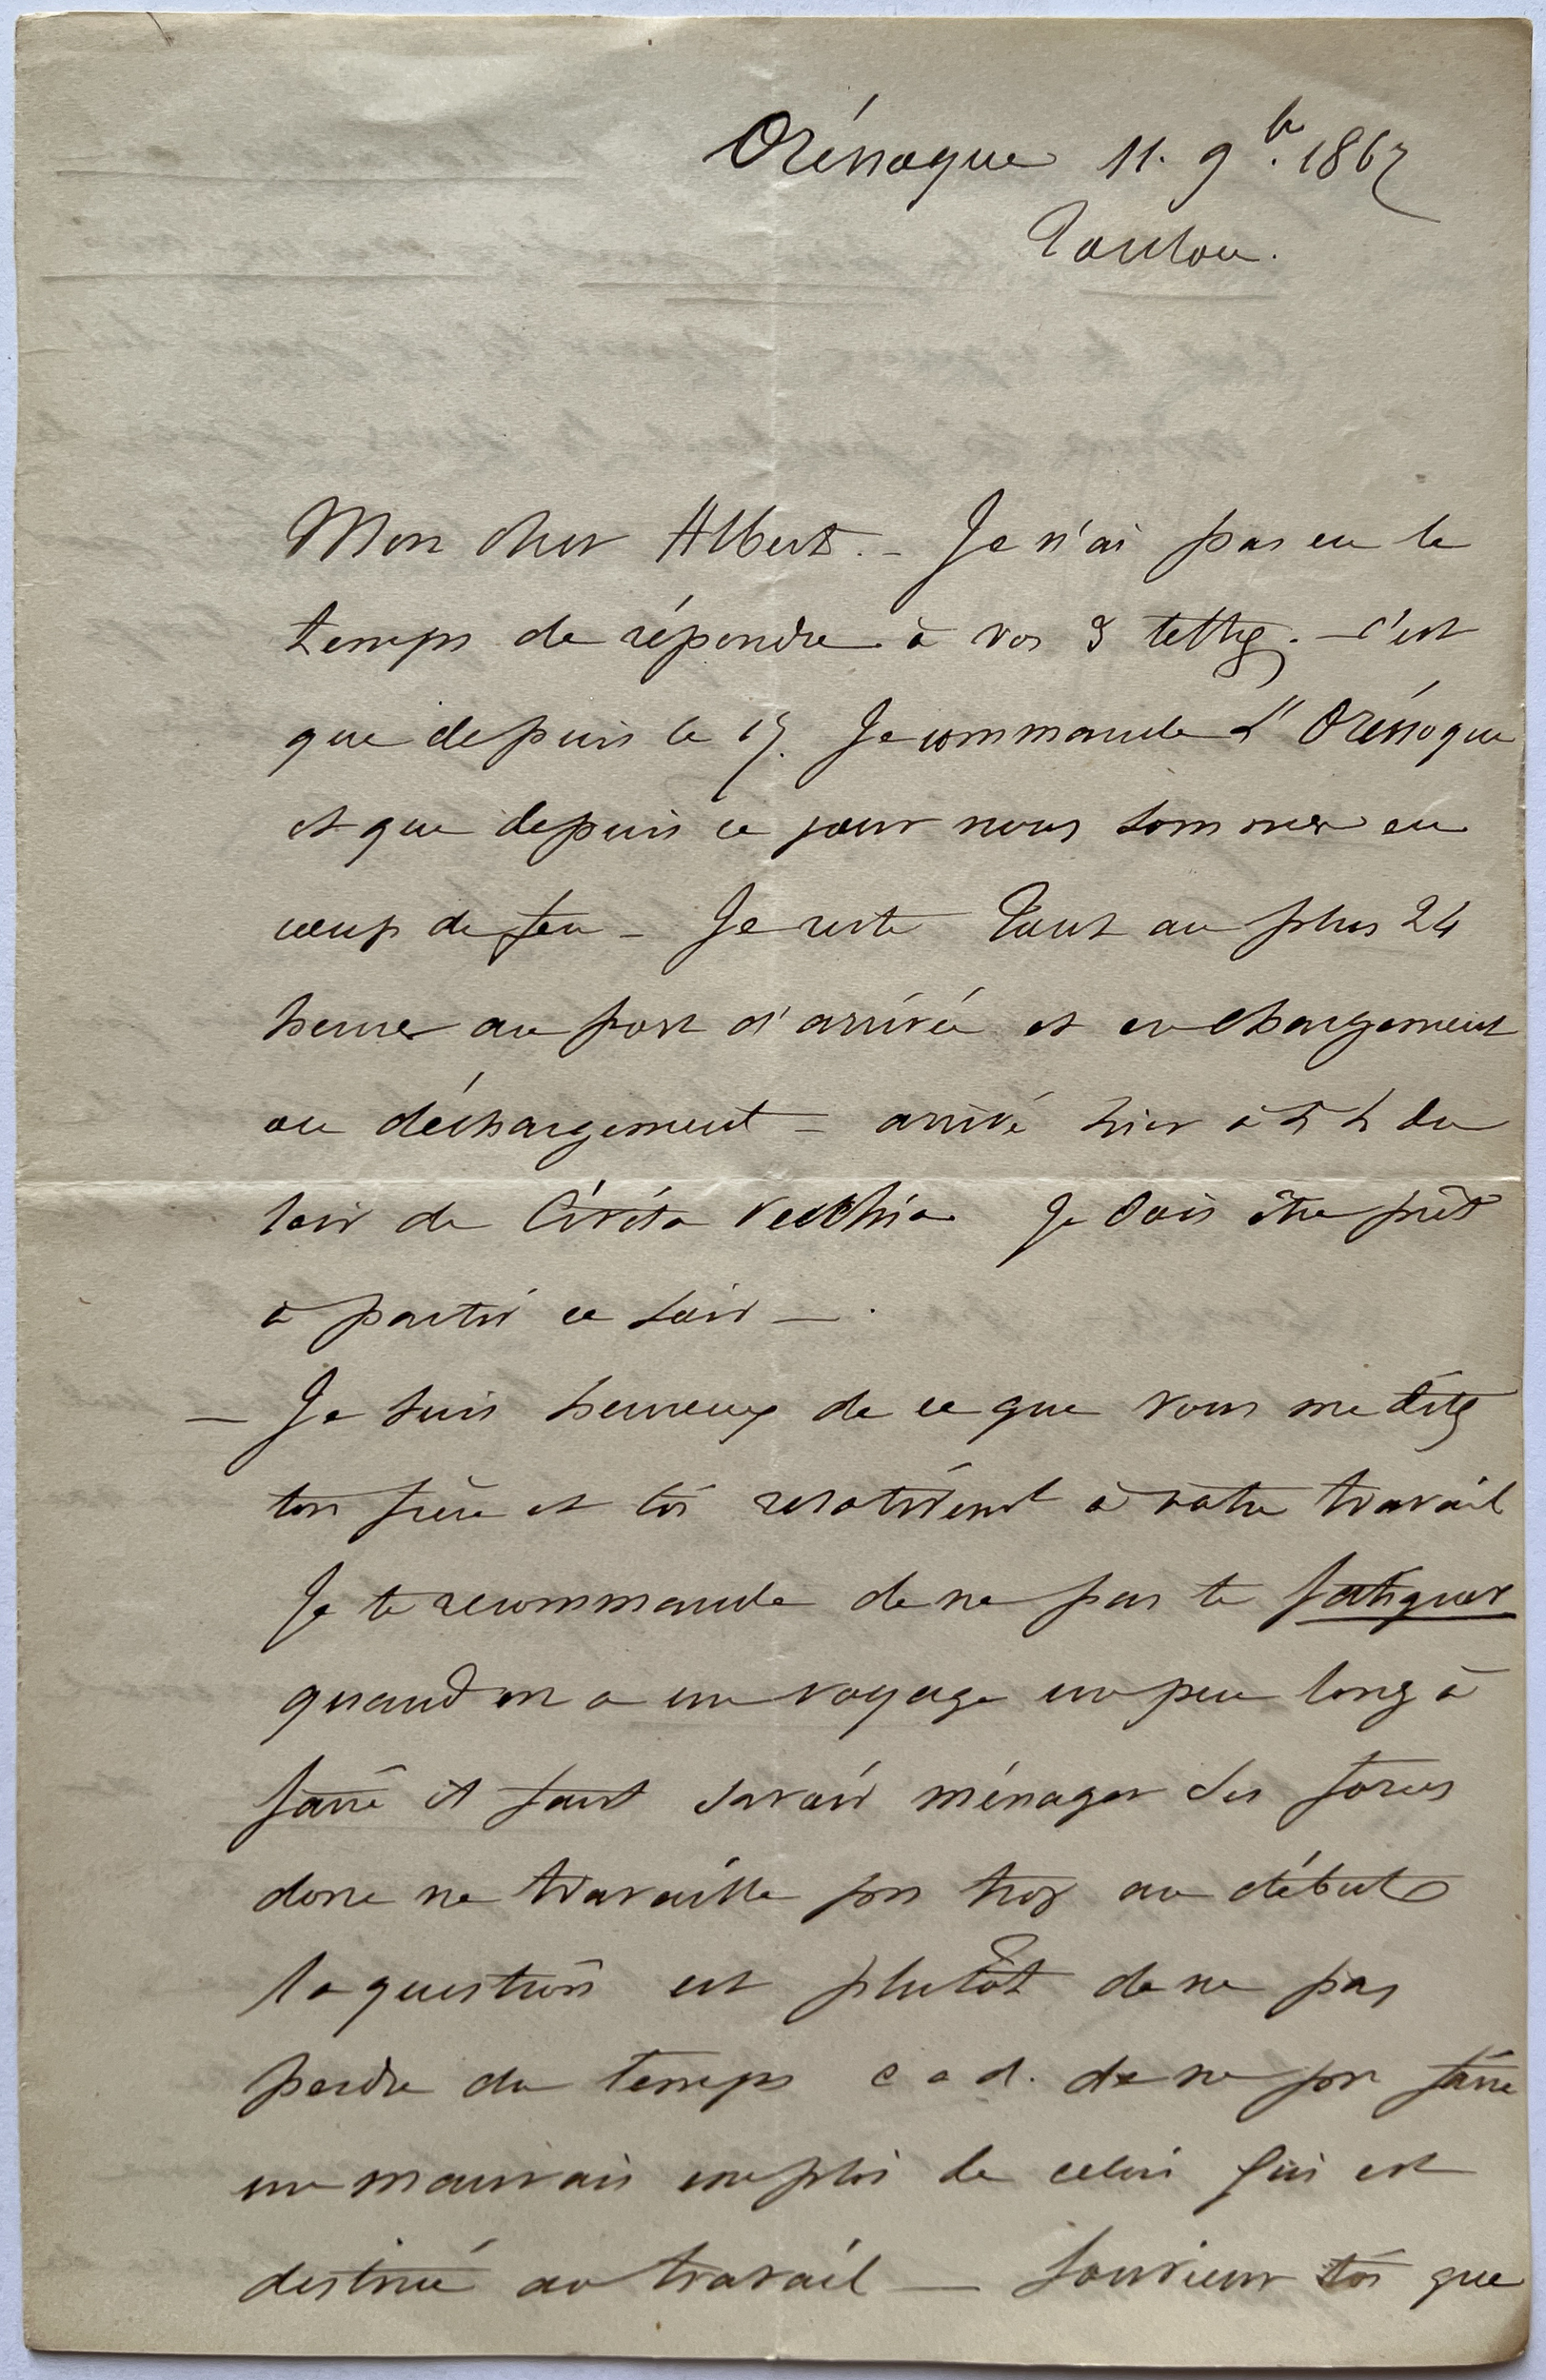 Orénoque 11. 9bre. 1867
Toulon.
Mon cher Albert. – Je n'ai pas eu le
temps de répondre à vos 3 lettres. – c'est
que depuis le 15. Je commande L'Orénoque
et que depuis ce jour nous sommes en
coup de feu – Je reste Tout au plus 24
heures au port d'arrivée et en chargement
ou déchargement – arrivé hier à 5 h du
soir de Civita Vecchia Je dois être prêt
à partir ce soir – .
– Je suis heureux de ce que vous me dites
ton frère et toi relativemt à votre travail
Je te recommande de ne pas te fatiguer
quand on a un voyage un peu long à
faire il faut savoir ménager ses forces
donc ne travaille pas trop au début
la question est plutôt de ne pas
perdre du temps c a d. de ne pas faire
un mauvais emploi de celui qui est
destiné au travail – Souviens toi que